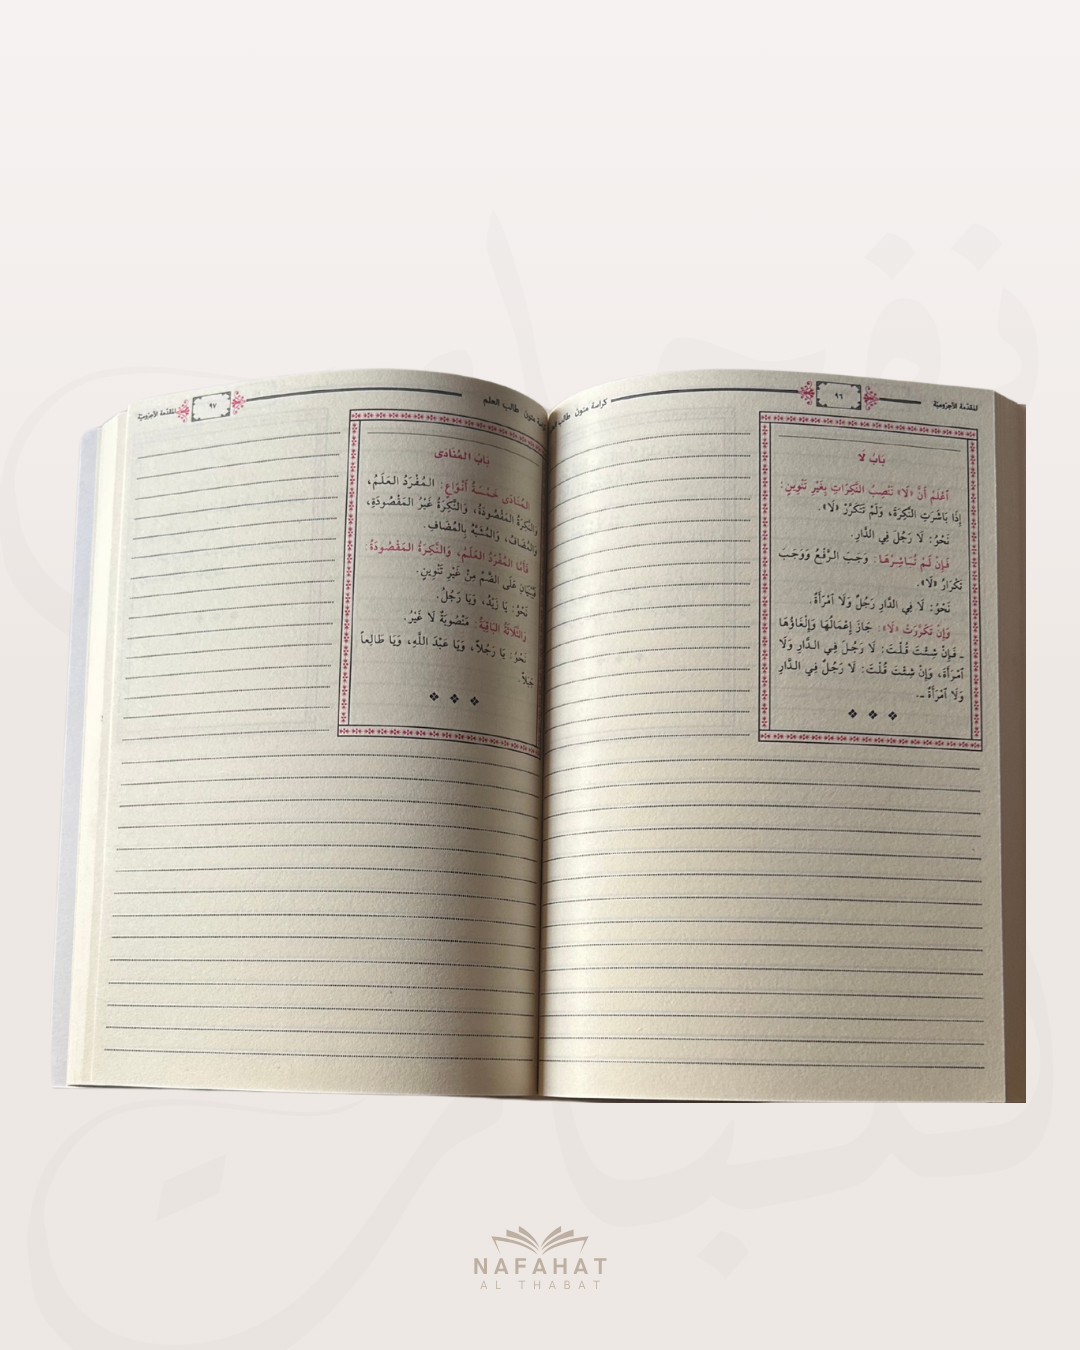 المقدمة الآجرومية
٩٦
كراسة متون طالب العلم
بَابُ لَا
ٱعْلَمْ أَنَّ «لَا» تَنْصِبُ النَّكِرَاتِ بِغَيْرِ تَنْوِينٍ:
إِذَا بَاشَرَتِ النَّكِرَةَ، وَلَمْ تَتَكَرَّرْ «لَا».
نَحْوُ: لَا رَجُلَ فِي الدَّارِ.
فَإِنْ لَمْ تُبَاشِرْهَا: وَجَبَ الرَّفْعُ وَوَجَبَ
تَكْرَارُ «لَا».
نَحْوُ: لَا فِي الدَّارِ رَجُلٌ وَلَا ٱمْرَأَةٌ.
وَإِنْ تَكَرَّرَتْ «لَا»: جَازَ إِعْمَالُهَا وَإِلْغَاؤُهَا
ـ فَإِنْ شِئْتَ قُلْتَ: لَا رَجُلَ فِي الدَّارِ وَلَا
ٱمْرَأَةَ، وَإِنْ شِئْتَ قُلْتَ: لَا رَجُلٌ فِي الدَّارِ
وَلَا ٱمْرَأَةٌ ـ.
طالب العلم
٩٧
المقدمة الآجرومية
بَابُ المُنَادَى
المُنَادَى خَمْسَةُ أَنْوَاعٍ: المُفْرَدُ العَلَمُ،
وَالنَّكِرَةُ المَقْصُودَةُ، وَالنَّكِرَةُ غَيْرُ المَقْصُودَةِ،
وَالمُضَافُ، وَالمُشَبَّهُ بِالمُضَافِ.
فَأَمَّا المُفْرَدُ العَلَمُ، وَالنَّكِرَةُ المَقْصُودَةُ:
فَيُبْنَيَانِ عَلَى الضَّمِّ مِنْ غَيْرِ تَنْوِينٍ.
نَحْوُ: يَا زَيْدُ، وَيَا رَجُلُ.
وَالثَّلَاثَةُ البَاقِيَةُ: مَنْصُوبَةٌ لَا غَيْرُ.
نَحْوُ: يَا رَجُلاً، وَيَا عَبْدَ اللَّهِ، وَيَا طَالِعاً
جَبَلاً.
NAFAHAT
AL THABAT